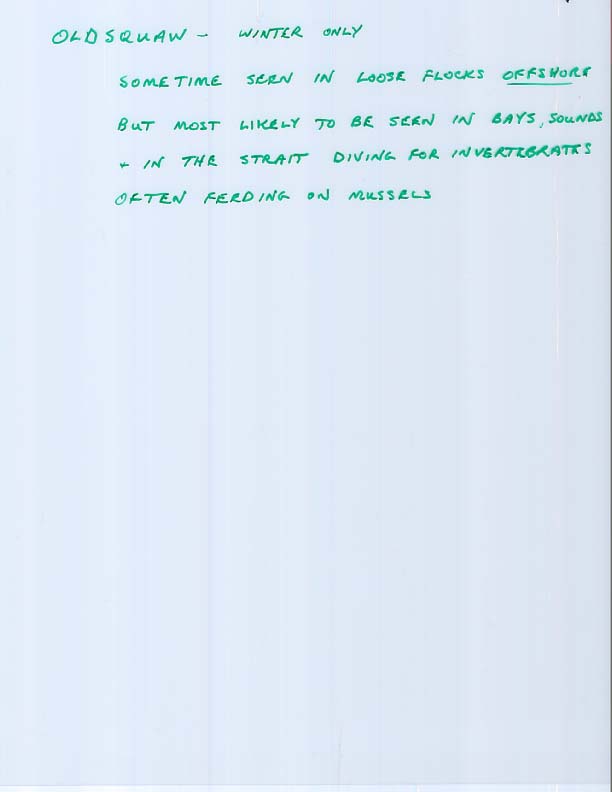 OLDSQUAW - WINTER ONLY
SOMETIME SEEN IN LOOSE FLOCKS OFFSHORE
BUT MOST LIKELY TO BE SEEN IN BAYS, SOUNDS
+ IN THE STRAIT DIVING FOR INVERTEBRATES
OFTEN FEEDING ON MUSSELS